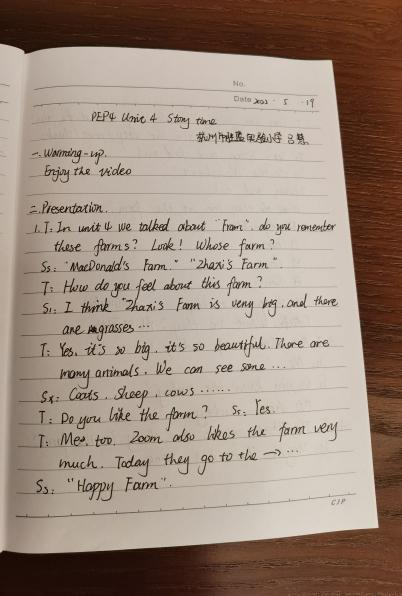 No.
Date 2022 · 5 · 19
PEP4 Unit 4 Story time
杭州市胜蓝实验小学 吕慧
一. Warming-up.
Enjoy the video
二. Presentation.
1. T: In unit 4 we talked about "Fram". do you remember
these farms? Look! Whose farm?
Ss: "MacDonald's Farm" "Zhaxi's Farm".
T: How do you feel about this farm?
S1: I think "Zhaxi's Farm is very big, and there
are grasses ...
T: Yes, it's so big, it's so beautiful. There are
many animals. We can see some ...
Sx: Goats. Sheep, cows ......
T: Do you like the farm? Ss: Yes.
T: Me, too. Zoom also likes the farm very
much. Today they go to the → ...
Ss: "Happy Farm".
CJP